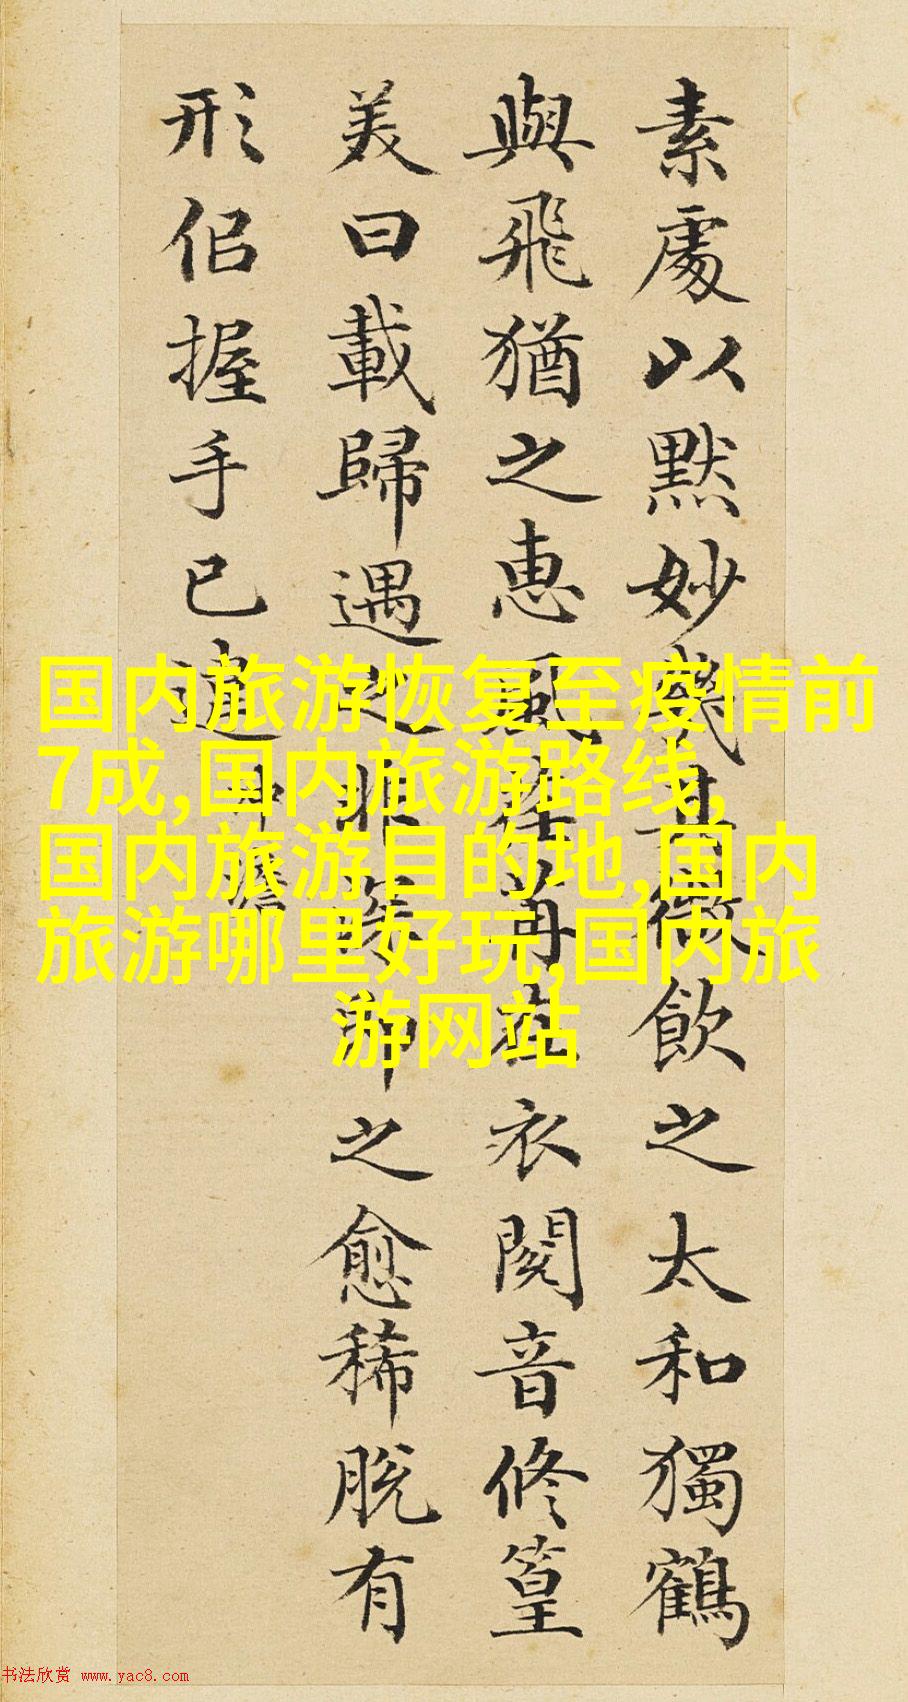 素處以默妙幾其微飲之太和獨鶴
與飛猶之惠風荏苒在衣閱音修篁
美曰載歸遇之非深即之愈稀脫有
形佀握手已違
沖澹
国内旅游恢复至疫情前
7成,国内旅游路线,
国内旅游目的地,国内
旅游哪里好玩,国内旅
游网站
书法欣赏 www.yac8.com